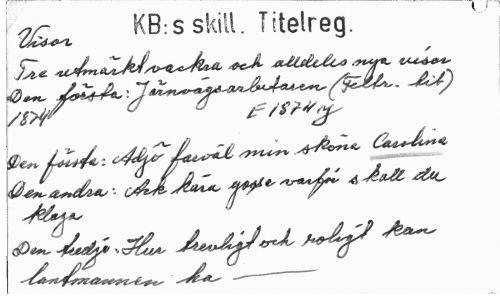 KB:s skill. Titelreg.
Visor
Tre utmärkt vackra och alldeles nya visor
Den första: Järnvägsarbetaren (Feltr. hit)
1874 E 1874 y
Den första: Adjö farväl min sköna Carolina
Den andra: Ack kära gosse varför skall du
klaga
Den tredje: Hur trevligt och roligt kan
lantmannen ha